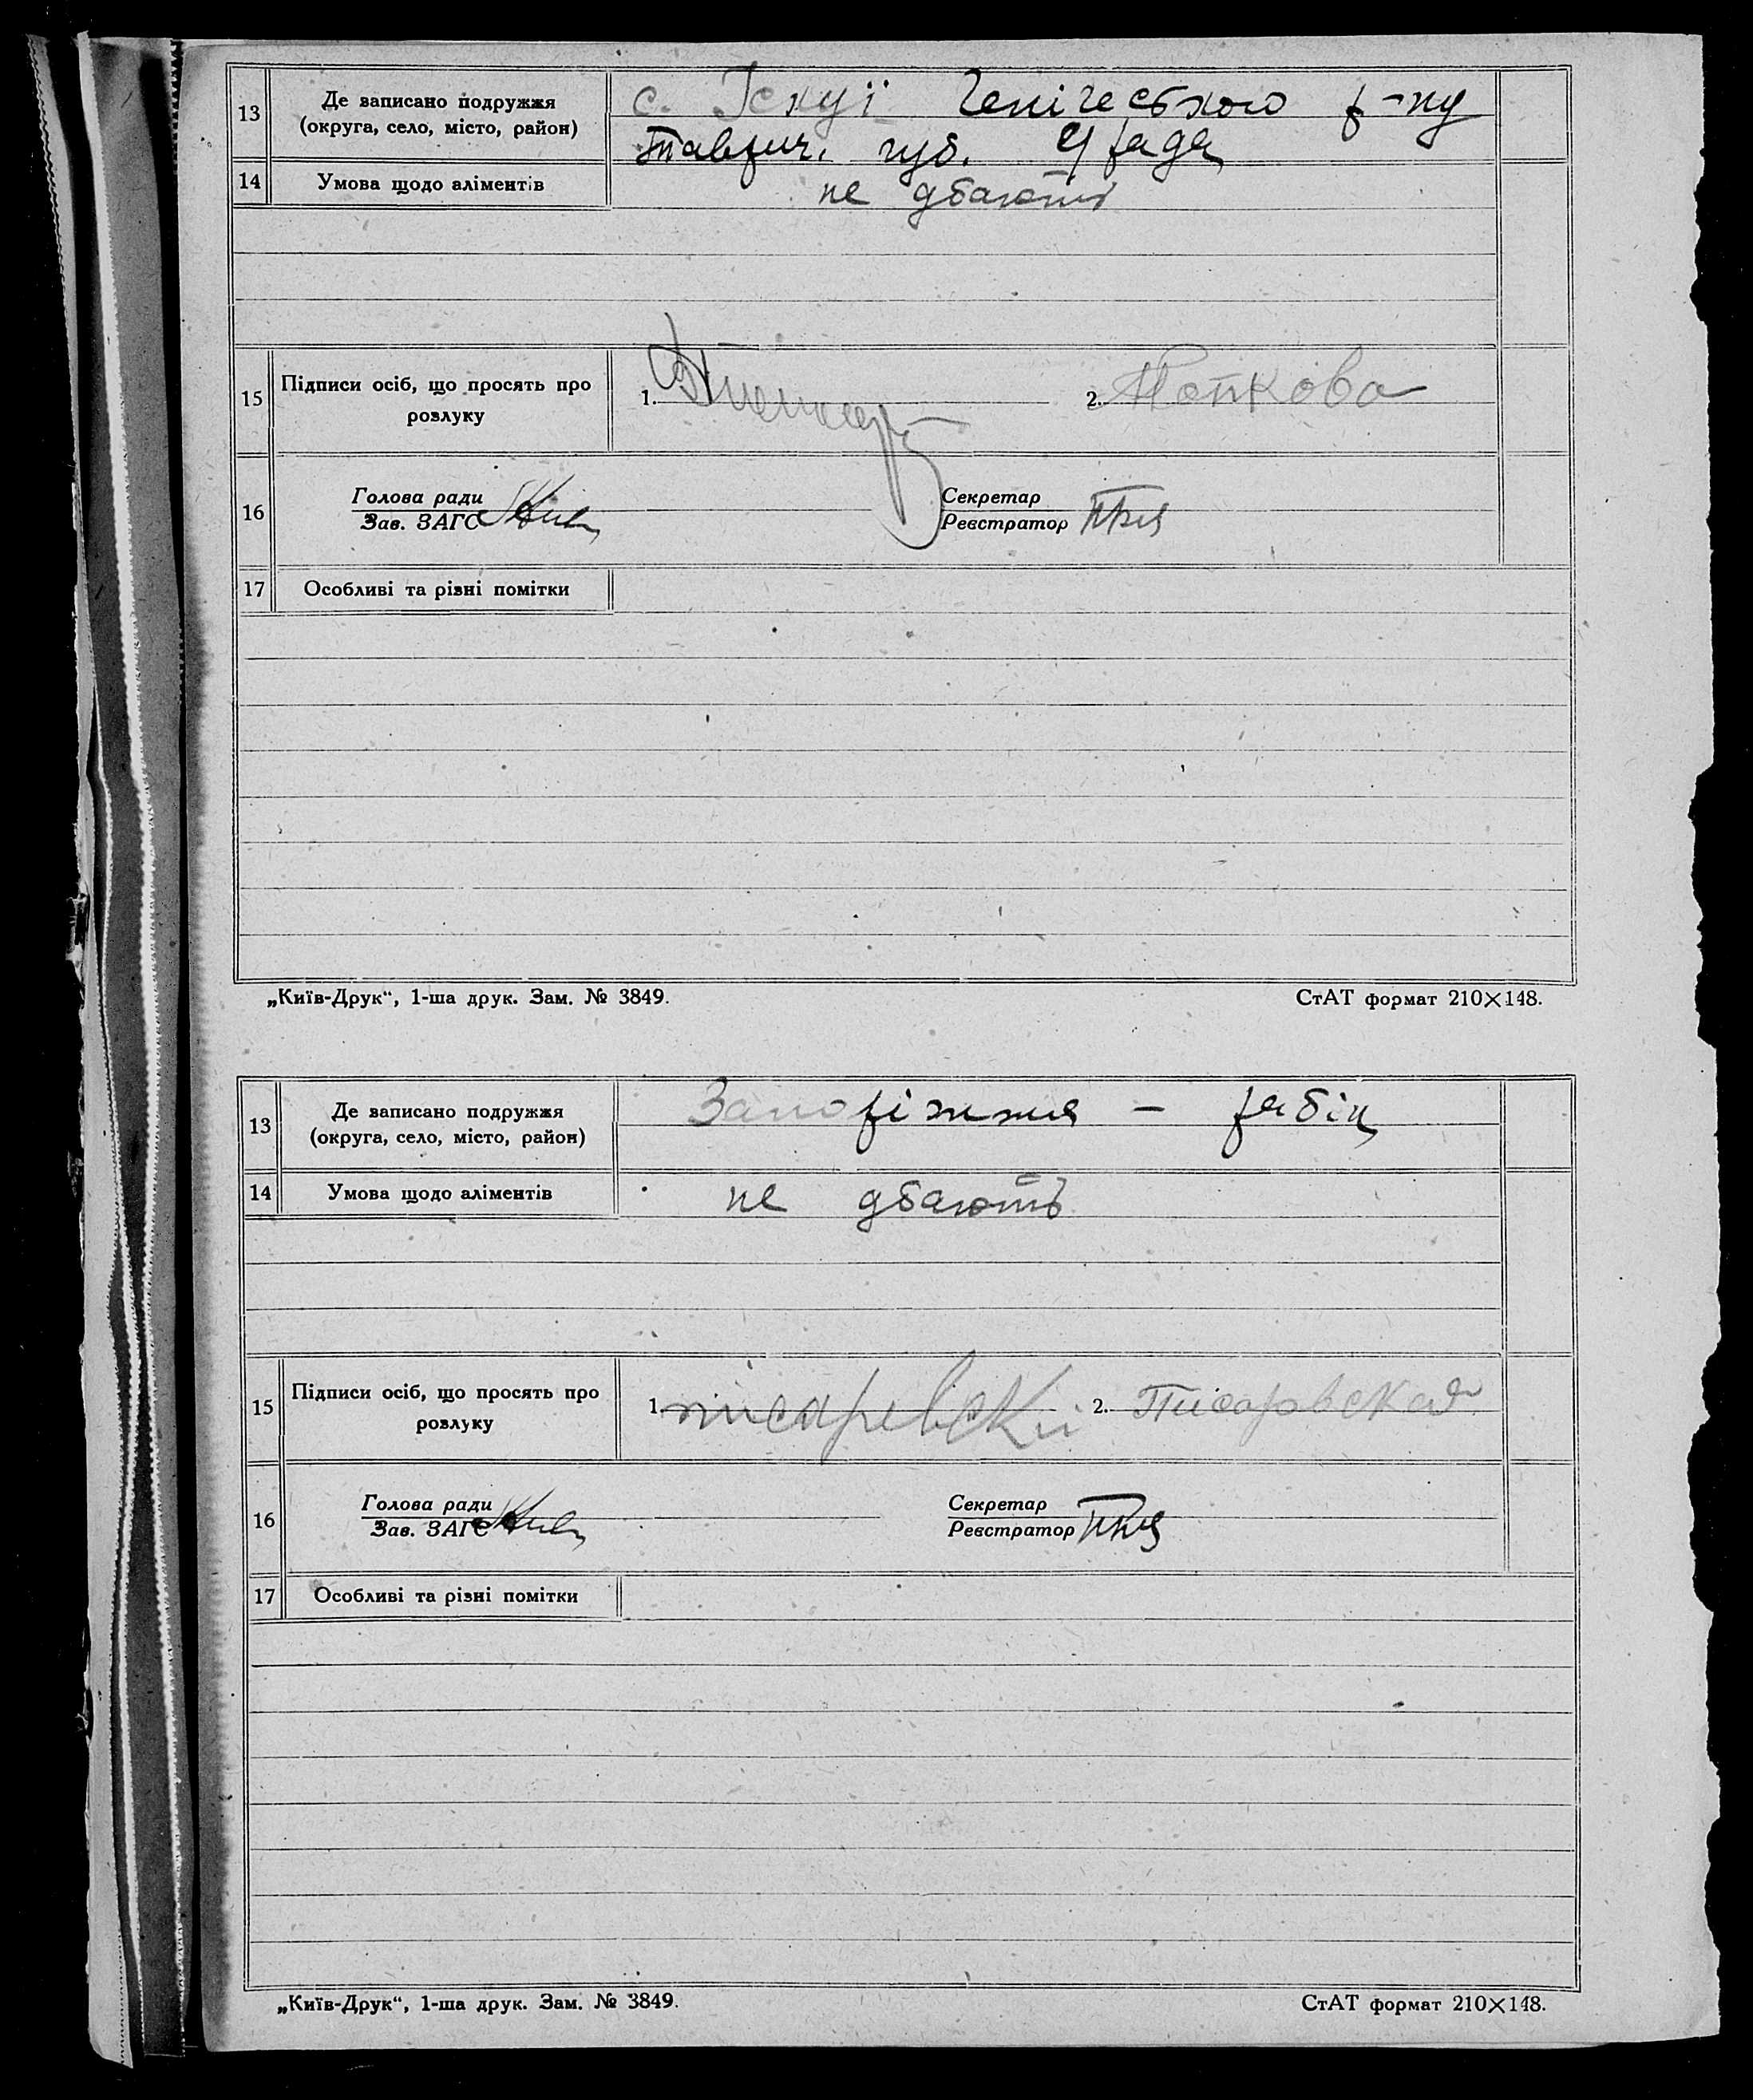 13 Де записано подружжя
(округа, село, місто, район)
с. Генічеського р-ну
Таврич. губ.
14 Умова щодо аліментів не дбають
15 Підписи осіб, що просять про
розлуку
1. 2. Попкова
16 Голова ради
Зав. ЗАГС
Секретар
Реєстратор
17 Особливі та різні помітки
„Київ-Друк“, 1-ша друк. Зам. № 3849. СтАТ формат 210×148.
13 Де записано подружжя
(округа, село, місто, район)
Запоріжжя - рабін
14 Умова щодо аліментів не дбають
15 Підписи осіб, що просять про
розлуку
1. писаревски 2. Писаревская
16 Голова ради
Зав. ЗАГС
Секретар
Реєстратор
17 Особливі та різні помітки
„Київ-Друк“, 1-ша друк. Зам. № 3849. СтАТ формат 210×148.